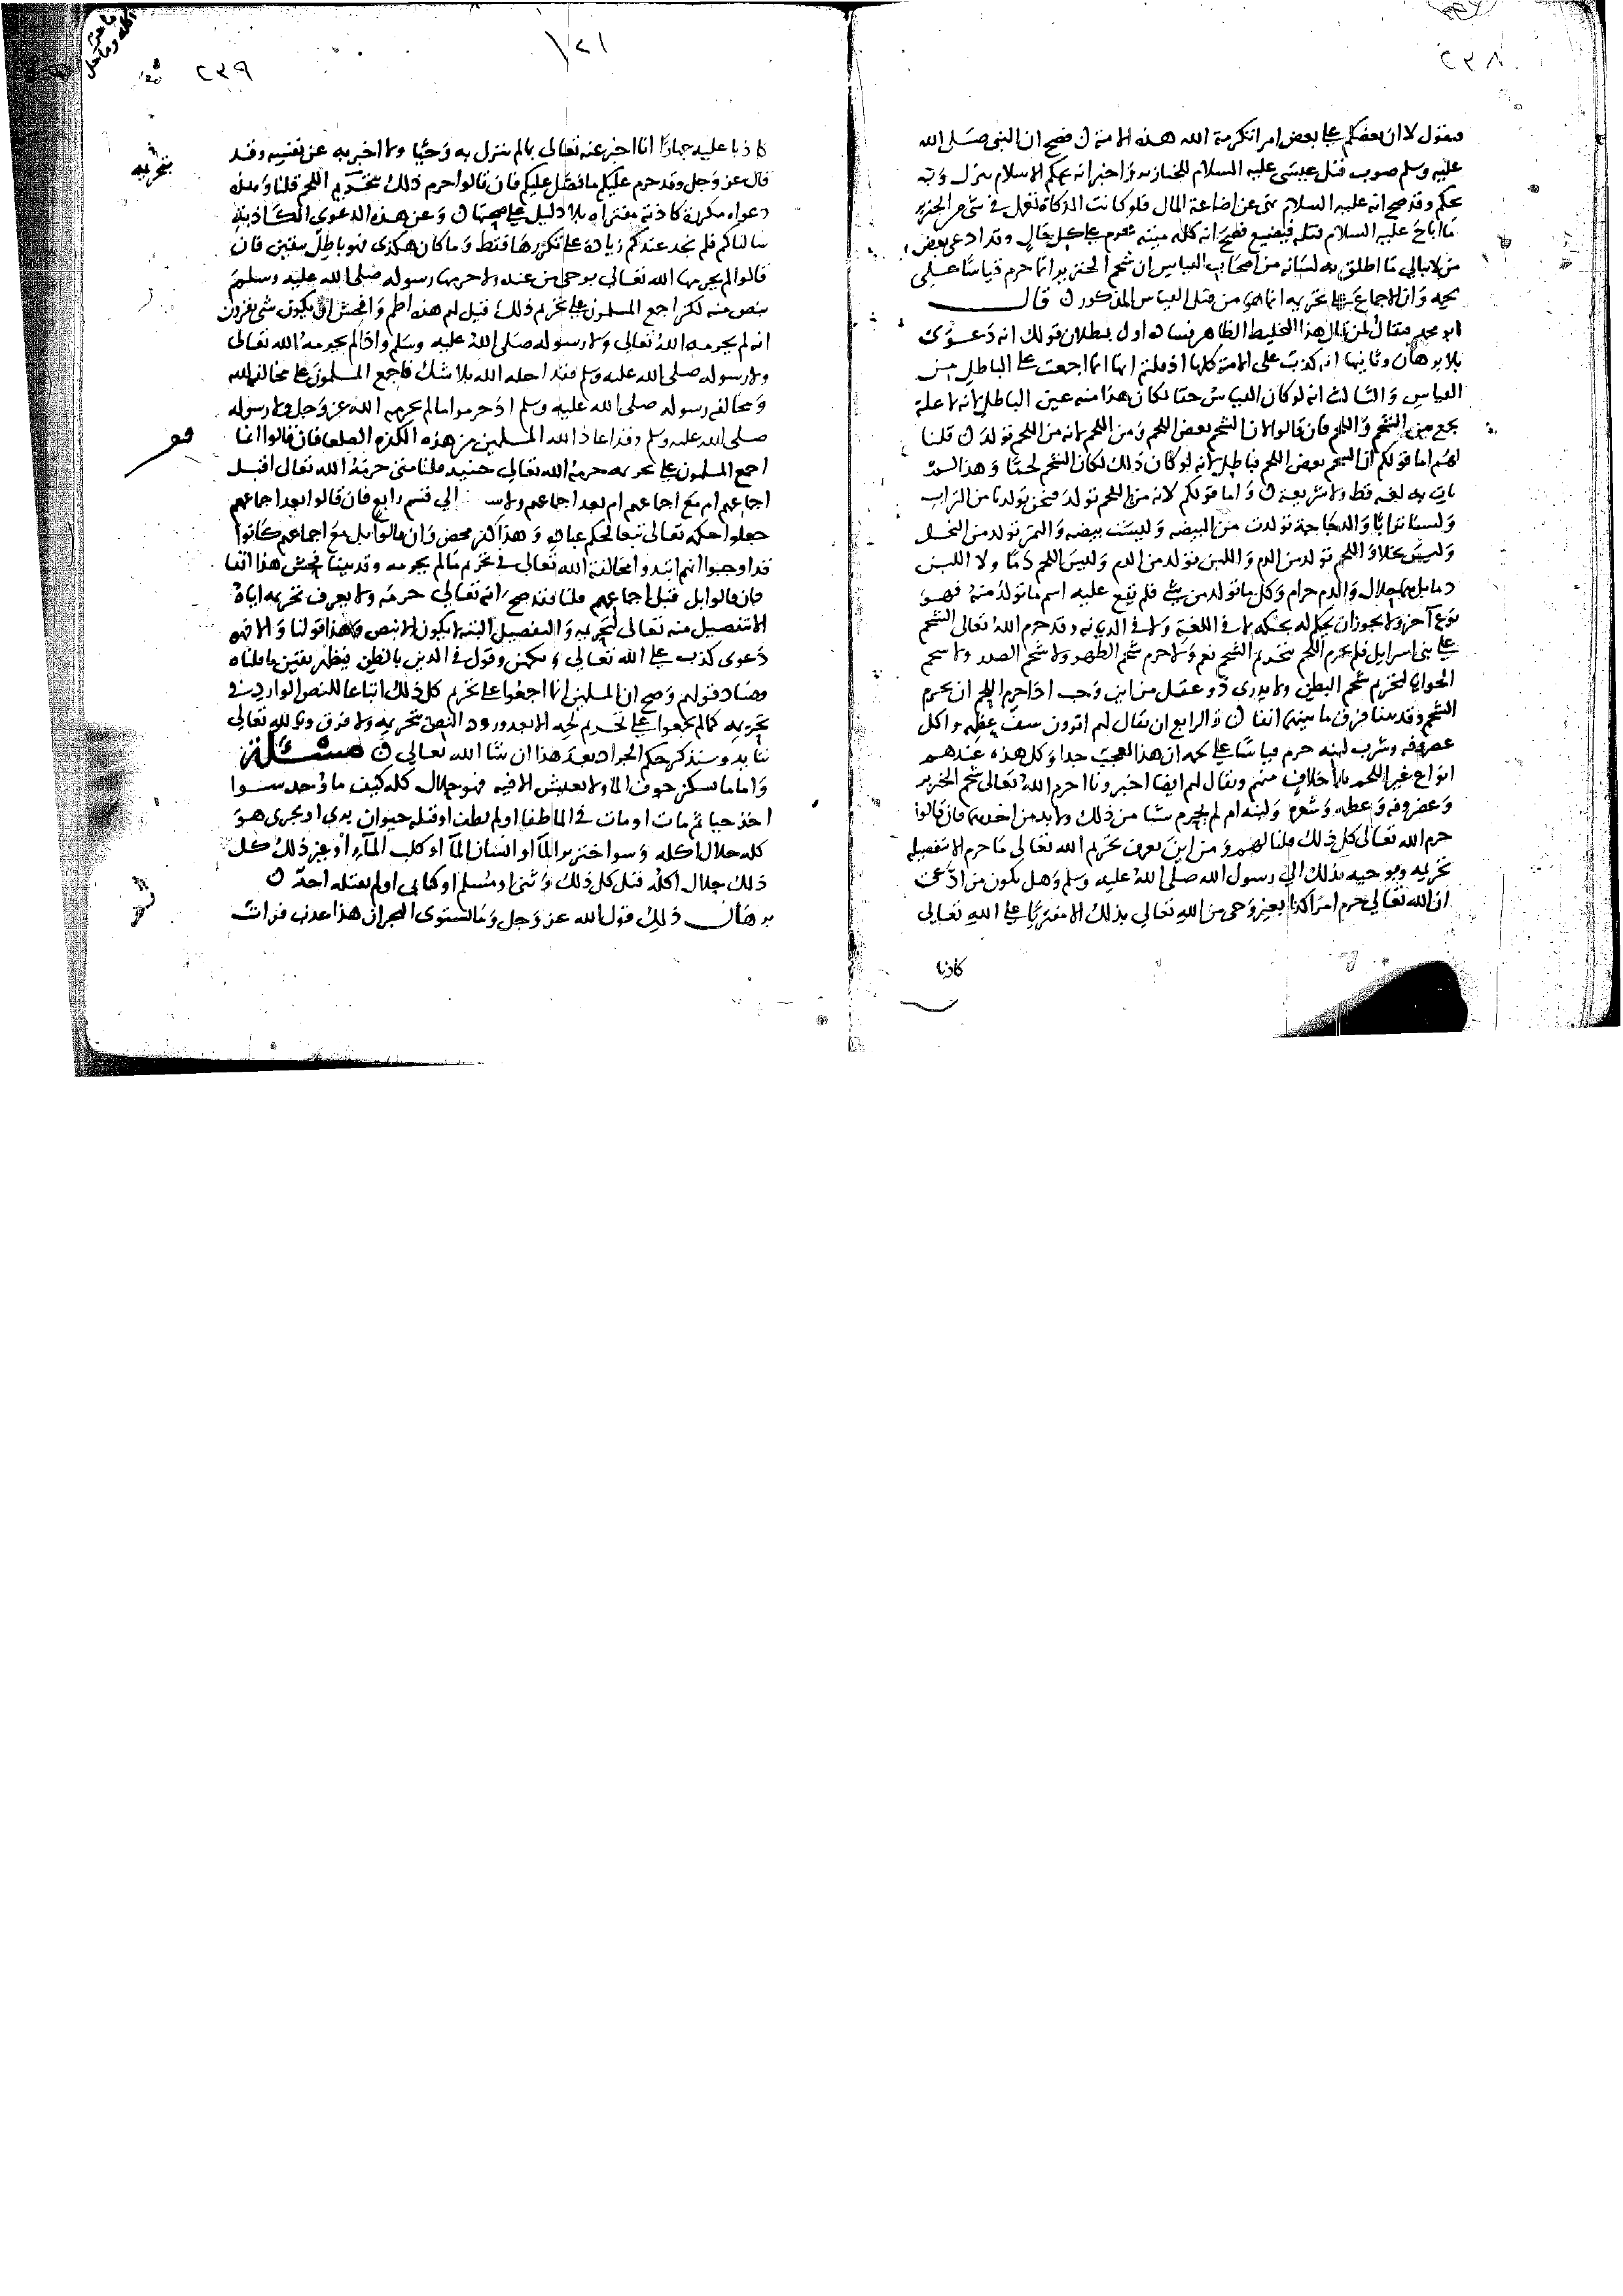 ٢٣٨
فيقول لا ان بعضكم على بعض امرا تكرمة الله هذه الامة ن فصح ان النبي صلى الله
عليه وسلم صوب قتل عيسى عليه السلام للخنازير واخبر انه بحكم الاسلام ينزل وبه
يحكم وقد صح انه عليه السلام نهى عن اضاعة المال فلو كانت الذكاة تعمل في شي من الخنزير
ما اباح عليه السلام قتله فيضيع فصح انه كله ميتة محرم على كل حال وقد ادعى بعض
من لا يبالي ما اطلق به لسانه من اصحاب القياس ان شحم الخنزير انما حرم قياسا على
لحمه وان الاجماع على تحريمه انما هو من قبل القياس المذكور ن قال
ابو محمد فيقال لمن قال هذا التخليط الظاهر فساده اول بطلان قولك انه دعوى
بلا برهان وثانيها انه كذب على الامة كلها اذ قلتم انها انما اجمعت على الباطل من
القياس والثالث انه لو كان القياس حقا لكان هذا منه عين الباطل لانه لا علة
تجمع بين الشحم واللحم فان قالوا لان الشحم بعض اللحم ومن اللحم لانه من اللحم تولد ن قلنا
لهم اما قولكم ان الشحم بعض اللحم فباطل لانه لو كان ذلك لكان الشحم لحما وهذا لم
يات به لغة قط ولا شريعة ن واما قولكم لانه من اللحم تولد فنحن تولدنا من التراب
ولسنا ترابا والدجاجة تولدت من البيضة وليست بيضة والتمر تولد من النخل
وليس نخلا واللحم تولد من الدم واللبن تولد من الدم وليس اللحم دما ولا اللبن
دما بل هما حلال والدم حرام وكل ما تولد من شي فلم يقع عليه اسم ما تولد منه فهو
نوع آخر ولا يجوز ان يحكم له بحكمه لا في اللغة ولا في الديانة وقد حرم الله تعالى الشحم
على بني اسرايل فلم يحرم اللحم بتحريم الشحم نعم ولا حرم شحم الظهر ولا شحم الصدر ولا شحم
الحوايا لتحريم شحم البطن ولا يدري ذو عقل من اين وجب اذا حرم اللحم ان يحرم
الشحم وقد بينا فرق ما بينهما آنفا ن والرابع ان يقال لهم اترون من سف عظمه واكل
غضروفه وشرب لبنه حرم قياسا على لحمه ان هذا لعجب جدا وكل هذه عندهم
انواع غير اللحم بلا خلاف منهم ويقال لهم ايضا اخبرونا احرم الله تعالى شحم الخنزير
وغضروفه وعظمه وشعره ولبنه ام لم يحرم شيا من ذلك ولا بد من احدهما فان قالوا
حرم الله تعالى كل ذلك قلنا لهم ومن اين يعرف تحريم الله تعالى ما حرم الا بتفصيله
تحريمه وبوحيه بذلك الى رسول الله صلى الله عليه وسلم وهل يكون من ادعى
ان الله تعالى حرم امرا كذا بغير وحي من الله تعالى بذلك الا مفتريا على الله تعالى
كاذبا
١٢١
٢٣٩
كاذبا عليه جهارا اذا اخبر عنه تعالى بما لم ينزل به وحيا ولا اخبر به عن نفسه وقد
قال عز وجل وقد فصل لكم ما حرم عليكم فان قالوا حرم ذلك بتحريم اللحم قلنا وهذه
دعواه مكررة كاذبة مفتراه بلا دليل على صحتها ن وعن هذه الدعوى الكاذبة
سالناكم فلم نجد عندكم زيادة على تكريرها فقط وما كان هكذا فهو باطل بيقين فان
قالوا لم يحرمها الله تعالى بوحي من عنده ولا حرمها رسوله صلى الله عليه وسلم
بنص منه لكن اجمع المسلمون على تحريم ذلك قيل لهم هذه اطم وافحش ان يكون شي تقرون
انه لم يحرمه الله تعالى ولا رسوله صلى الله عليه وسلم واذا لم يحرمه الله تعالى
ولا رسوله صلى الله عليه وسلم فقد احله الله بلا شك فاجمع المسلمون على مخالفة الله
ومخالفة رسوله صلى الله عليه وسلم اذ حرموا ما لم يحرمه الله عز وجل ولا رسوله
صلى الله عليه وسلم وقد اعاذ الله المسلمين من هذه الكفرة الصلعا فان قالوا انما
اجمع المسلمون على تحريمه حرمه الله تعالى حينيذ قلنا متى حرمه الله تعالى اقبل
اجماعهم ام مع اجماعهم ام بعد اجماعهم ولا سبيل الى قسم رابع فان قالوا بعد اجماعهم
جعلوا حكمه تعالى تبعا لحكم عباده وهذا كفر محض وان قالوا بل مع اجماعهم كانوا
قد اوجبوا انهم ابتدوا مخالفة الله تعالى في تحريم ما لم يحرمه وقد بينا فحش هذا آنفا
فان قالوا بل قبل اجماعهم قلنا فقد صح انه تعالى حرمه ولا يعرف تحريمه اياه
الا بتفصيل منه تعالى لتحريمه والتفصيل البتة لا يكون الا بنص وهذا قولنا والا فهو
دعوى كذب على الله تعالى وتكهن وقول في الدين بالظن فظهر يقين ما قلناه
وفساد قولهم وصح ان المسلمين انما اجمعوا على تحريم كل ذلك اتباعا للنص الوارد في
تحريمه كما لم يجمعوا على تحريم لحمه الا بعد ورود النص بتحريمه ولا فرق ولله تعالى
نتايد وسنذكر حكم الجراد بعد هذا ان شا الله تعالى ن مسئلة
واما ما يسكن جوف الما ولا يعيش الا فيه فهو حلال كله كيف ما وجد سوا
اخذ حيا ثم مات او مات في الما طفا او لم يطف او قتله حيوان بحري او بري هو
كله حلال اكله وسوا خنزير الما او انسان الما او كلب الما او غير ذلك كل
ذلك حلال اكله قتل كل ذلك وثني او مسلم او كتابي او لم يقتله احد ن
برهان ذلك قول الله عز وجل وما يستوي البحران هذا عذب فرات
بتحريمه